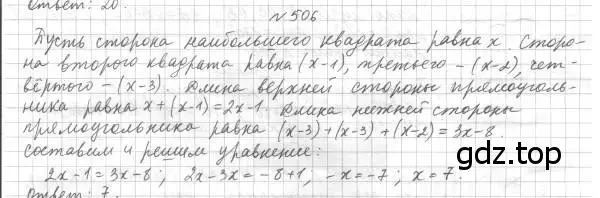 Ответ: 20.
№506
Пусть сторона наибольшего квадрата равна x. Сторо-
на второго квадрата равна (x-1), третьего - (x-2), чет-
вёртого - (x-3). Длина верхней стороны прямоуголь-
ника равна x+(x-1)=2x-1. Длина нижней стороны
прямоугольника равна (x-3)+(x-3)+(x-2)=3x-8
составим и решим уравнение:
2x-1=3x-8; 2x-3x=-8+1; -x=-7; x=7.
Ответ: 7.
gdz.top